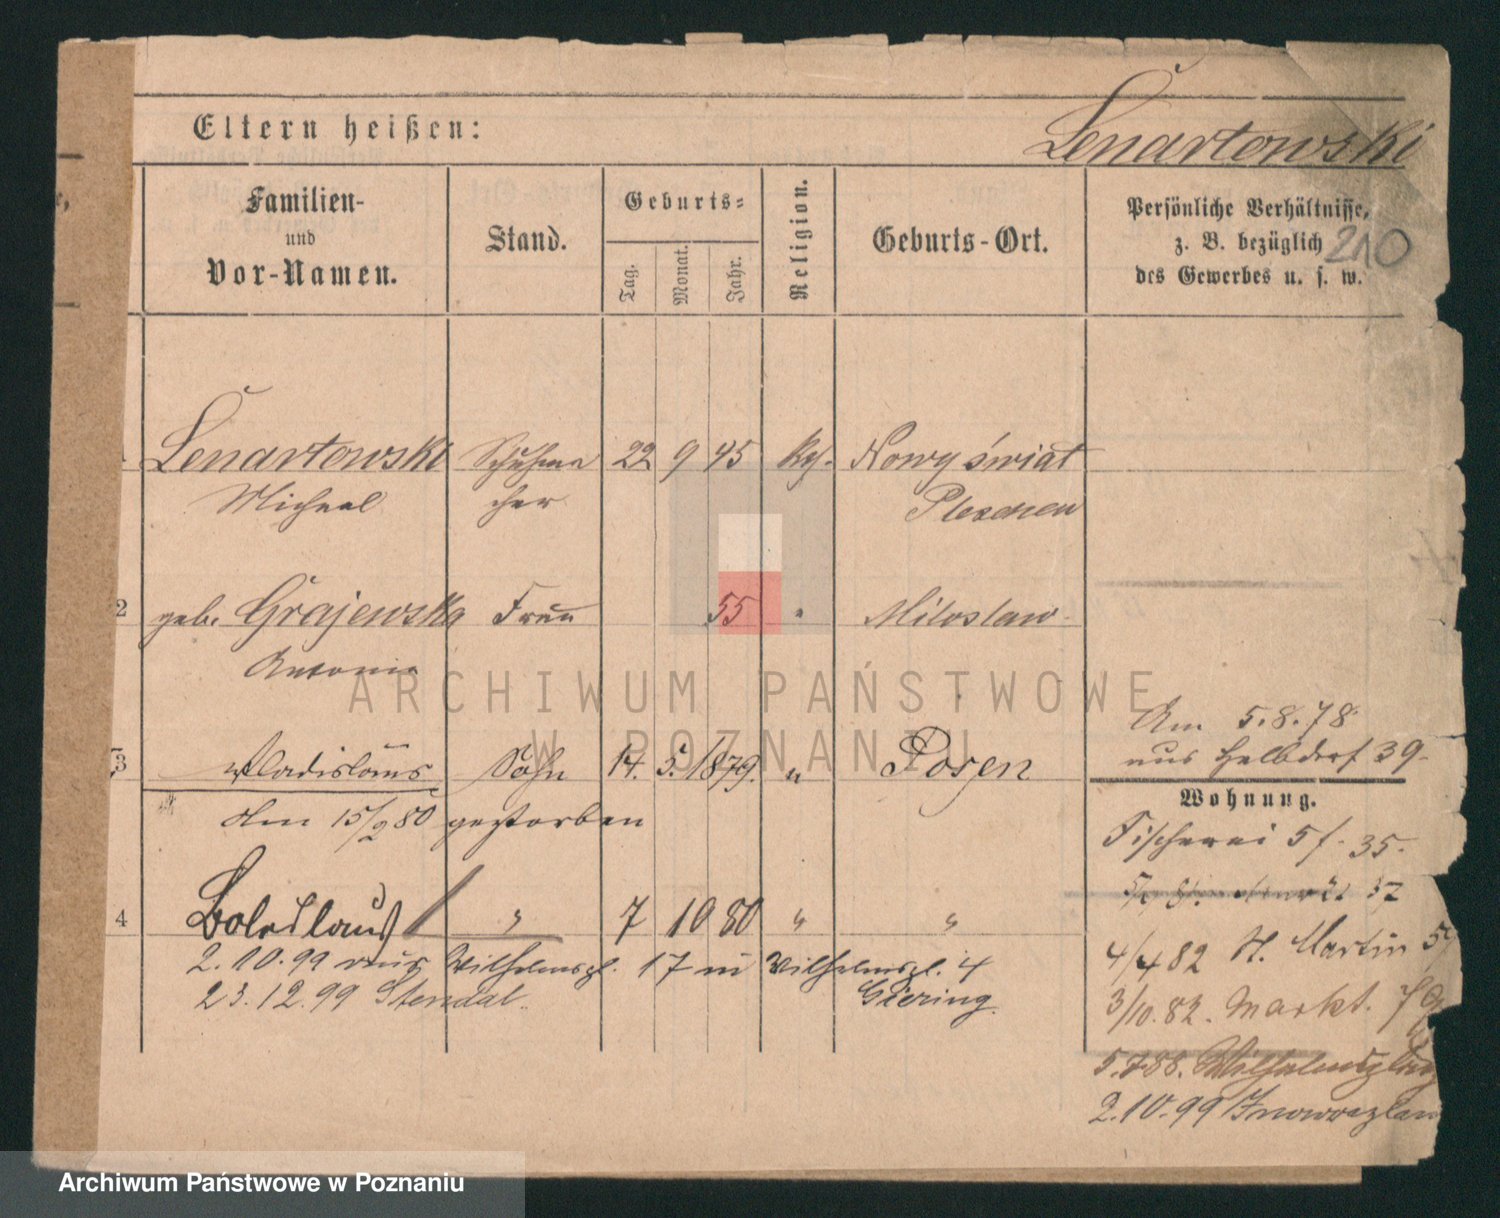 Eltern heißen:
Lenartowski
Familien-
und
Vor-Namen.
Stand.
Geburts-
Tag.
Monat.
Jahr.
Religion.
Geburts-Ort.
Persönliche Verhältnisse,
z. B. bezüglich
des Gewerbes u. s. w.
210
Lenartowski Schuhma 22 9 45 Nowy świat
Michael cher Pleschen
2 geb. Grajewska Frau 55 " Miloslaw
Antonie
3 Wladislaus Sohn 14. 5. 1879. " Posen
Am 15/2 80 gestorben
4 Boleslaus " 7 10 80 " "
2. 10. 99 aus Wilhelmspl. 17 in Wilhelmspl. 4
23. 12. 99 Stendal. Giering
Am 5.8.78
aus 39
Wohnung.
Fischerei 5 f. 35.
4/4 82 St. Martin
3/10. 82. Markt.
5.7.88. Wilhelmsplatz
2.10.99
ARCHIWUM PAŃSTWOWE
W POZNANIU
Archiwum Państwowe w Poznaniu